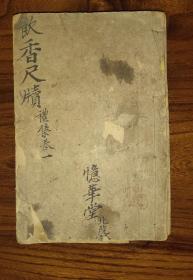 飲香尺牘
禮像卷一
憶華堂